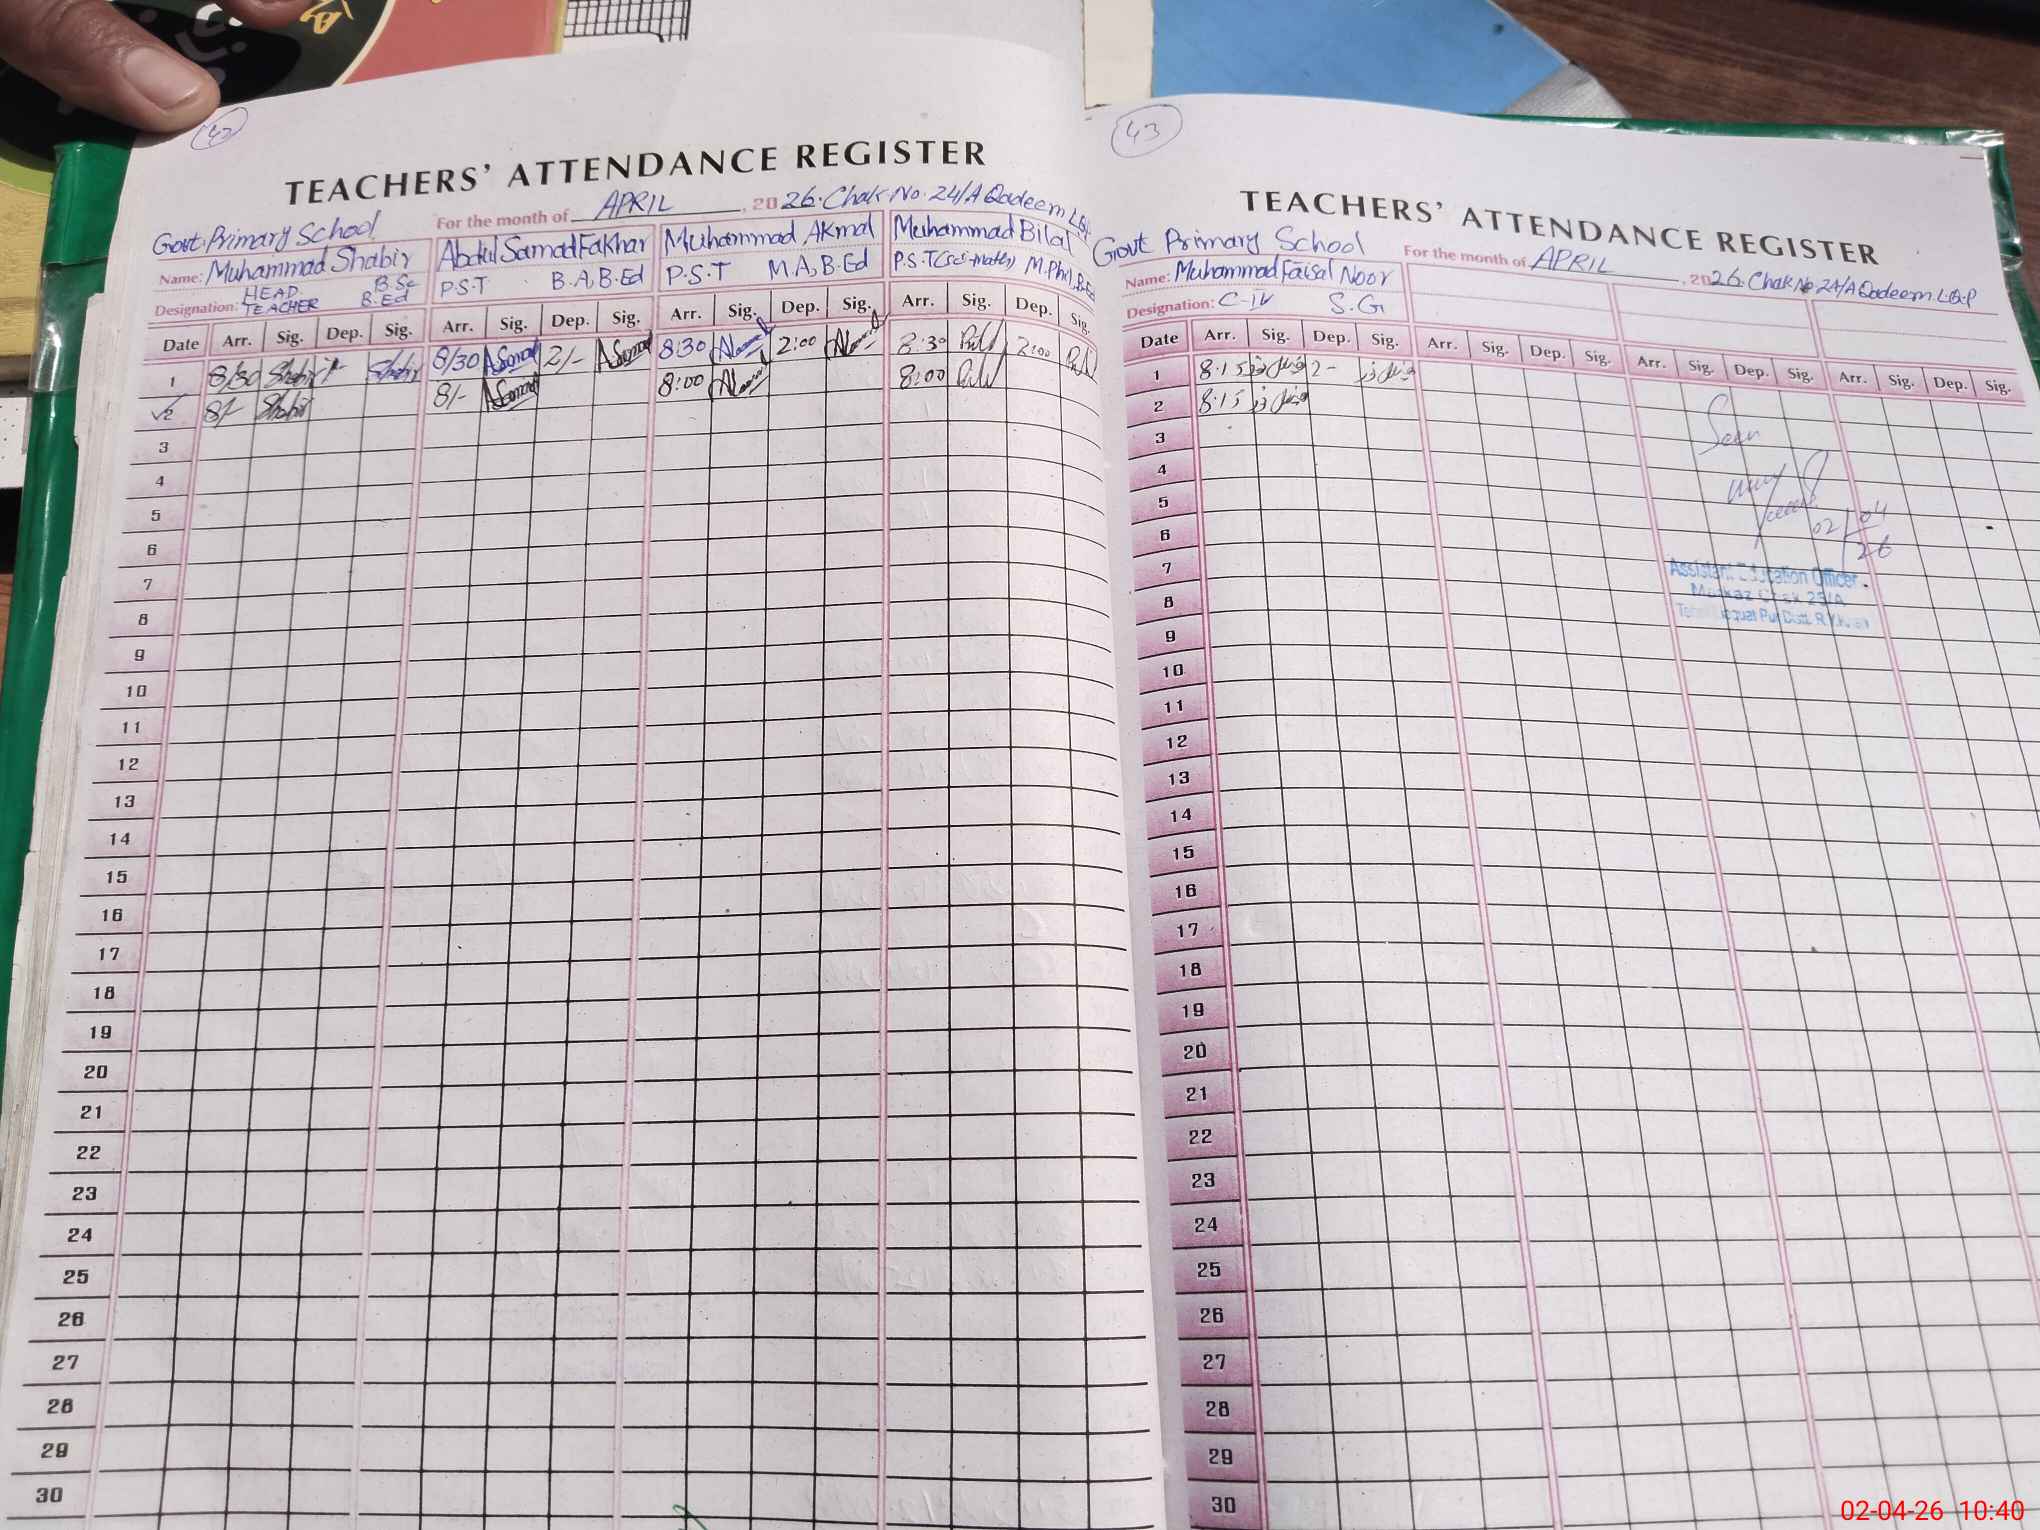 42
TEACHERS' ATTENDANCE REGISTER
Govt. Primary School For the month of APRIL, 2026. Chak No. 24/A Qadeem L.Q.P
Name: Muhammad Shabir Abdul Samad Fakhar Muhammad Akmal Muhammad Bilal
Designation: HEAD TEACHER B.Sc B.Ed P.S.T B.A, B.Ed P.S.T M.A, B.Ed P.S.T (Sci-math) M.Phil, B.Ed
Date Arr. Sig. Dep. Sig. Arr. Sig. Dep. Sig. Arr. Sig. Dep. Sig. Arr. Sig. Dep. Sig.
1 8/30 Shabir Shabir 8/30 ASamad 2/- ASamad 8:30 2:00 8:30 2:00
2 8/- Shabir 8/- ASamad 8:00 8:00
3
4
5
6
7
8
9
10
11
12
13
14
15
16
17
18
19
20
21
22
23
24
25
26
27
28
29
30
43
TEACHERS' ATTENDANCE REGISTER
Govt Primary School For the month of APRIL, 2026. Chak No 24/A Qadeem L.Q.P
Name: Muhammad Faisal Noor
Designation: C-IV S.G
Date Arr. Sig. Dep. Sig. Arr. Sig. Dep. Sig. Arr. Sig. Dep. Sig. Arr. Sig. Dep. Sig.
1 8:15 فیصل نور 2- فیصل نور
2 8:15 فیصل نور
3
4
5
6
7
8
9
10
11
12
13
14
15
16
17
18
19
20
21
22
23
24
25
26
27
28
29
30
Seen
02/04/26
Assistant Education Officer
Markaz Chak 25/A
Liaquat Pur Distt. R.Y.Khan
02-04-26 10:40